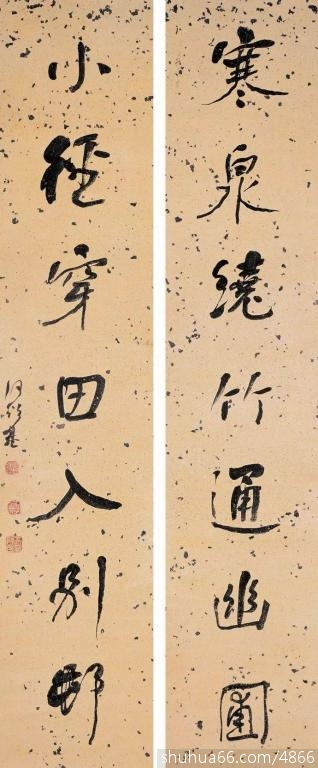 寒泉繞竹通幽圃
小徑穿田入別邨
何紹基
shuhua66.com/4866